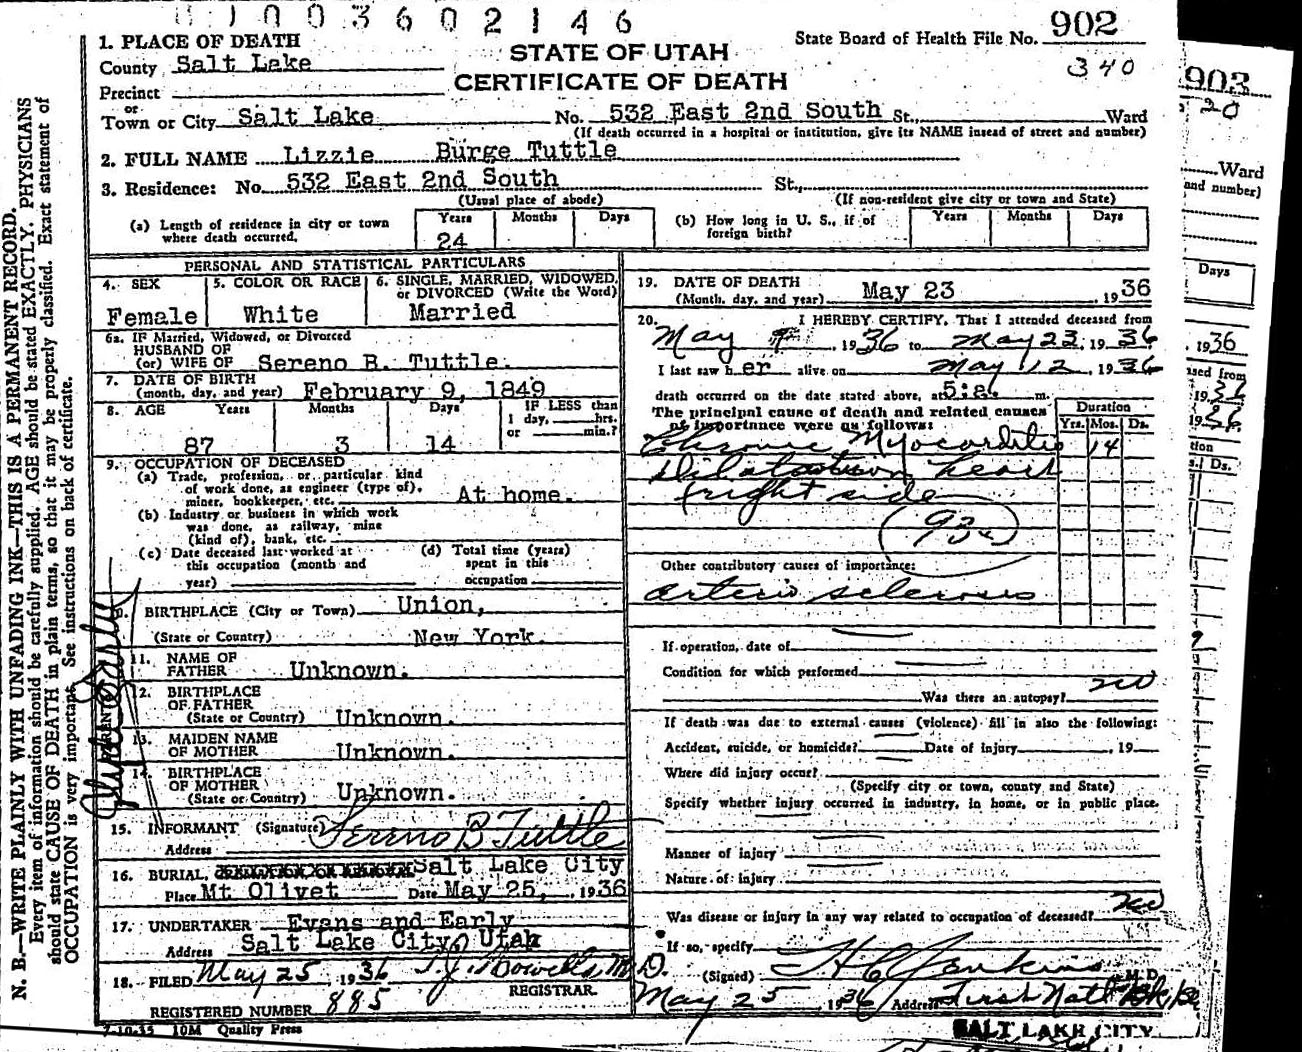 0 1 0 0 3 6 0 2 1 4 6
State Board of Health File No. 902
340
1. PLACE OF DEATH
County Salt Lake
STATE OF UTAH
CERTIFICATE OF DEATH
Precinct
or
Town or City Salt Lake No. 532 East 2nd South St., Ward
(If death occurred in a hospital or institution, give its NAME insead of street and number)
2. FULL NAME Lizzie Burge Tuttle
3. Residence: No. 532 East 2nd South St.,
(Usual place of abode) (If non-resident give city or town and State)
(a) Length of residence in city or town where death occurred. Years 24 Months Days
(b) How long in U. S., if of foreign birth? Years Months Days
PERSONAL AND STATISTICAL PARTICULARS
4. SEX Female
5. COLOR OR RACE White
6. SINGLE, MARRIED, WIDOWED, or DIVORCED (Write the Word) Married
6a. IF Married, Widowed, or Divorced
HUSBAND OF
(or) WIFE OF Sereno B. Tuttle.
7. DATE OF BIRTH
(month, day, and year) February 9, 1849
8. AGE Years Months Days IF LESS than
1 day, hrs.
or min.?
87 3 14
9. OCCUPATION OF DECEASED
(a) Trade, profession, or particular kind
of work done, as engineer (type of).
miner, bookkeeper, etc. At home.
(b) Industry or business in which work
was done, as railway, mine
(kind of), bank, etc.
(c) Date deceased last worked at
this occupation (month and
year)
(d) Total time (years)
spent in this
occupation
10. BIRTHPLACE (City or Town) Union,
(State or Country) New York.
11. NAME OF
FATHER Unknown.
12. BIRTHPLACE
OF FATHER
(State or Country) Unknown.
13. MAIDEN NAME
OF MOTHER Unknown.
14. BIRTHPLACE
OF MOTHER
(State or Country) Unknown.
15. INFORMANT (Signature) Sereno B Tuttle
Address
16. BURIAL, Salt Lake City
Place Mt Olivet Date May 25, 1936
17. UNDERTAKER Evans and Early
Address Salt Lake City, Utah
18. FILED May 25, 1936 M.D.
REGISTRAR.
REGISTERED NUMBER 885
7-10-35 10M Quality Press
19. DATE OF DEATH
(Month, day, and year) May 23 1936
20. I HEREBY CERTIFY, That I attended deceased from
May 1936 to May 23, 1936
I last saw her alive on May 12, 1936
death occurred on the date stated above, at 5:a. m.
The principal cause of death and related causes
of importance were as follows:
Duration
Yrs. Mos. Ds.
Chronic Myocarditis 14
heart
right side
(93c)
Other contributory causes of importance:
Arterio sclerosis
If operation, date of
Condition for which performed
Was there an autopsy? no
If death was due to external causes (violence) fill in also the following:
Accident, suicide, or homicide? Date of injury , 19
Where did injury occur?
(Specify city or town, county and State)
Specify whether injury occurred in industry, in home, or in public place.
Manner of injury
Nature of injury
Was disease or injury in any way related to occupation of deceased? no
If so, specify
(Signed) H C Jenkins M. D.
May 25 1936 Address First Natl Bk
SALT LAKE CITY
N. B.—WRITE PLAINLY WITH UNFADING INK—THIS IS A PERMANENT RECORD.
Every item of information should be carefully supplied. AGE should be stated EXACTLY. PHYSICIANS
should state CAUSE OF DEATH in plain terms, so that it may be properly classified. Exact statement of
OCCUPATION is very important. See instructions on back of certificate.
903
20
Ward
and number)
Days
1936
ased from
tion
Ds.